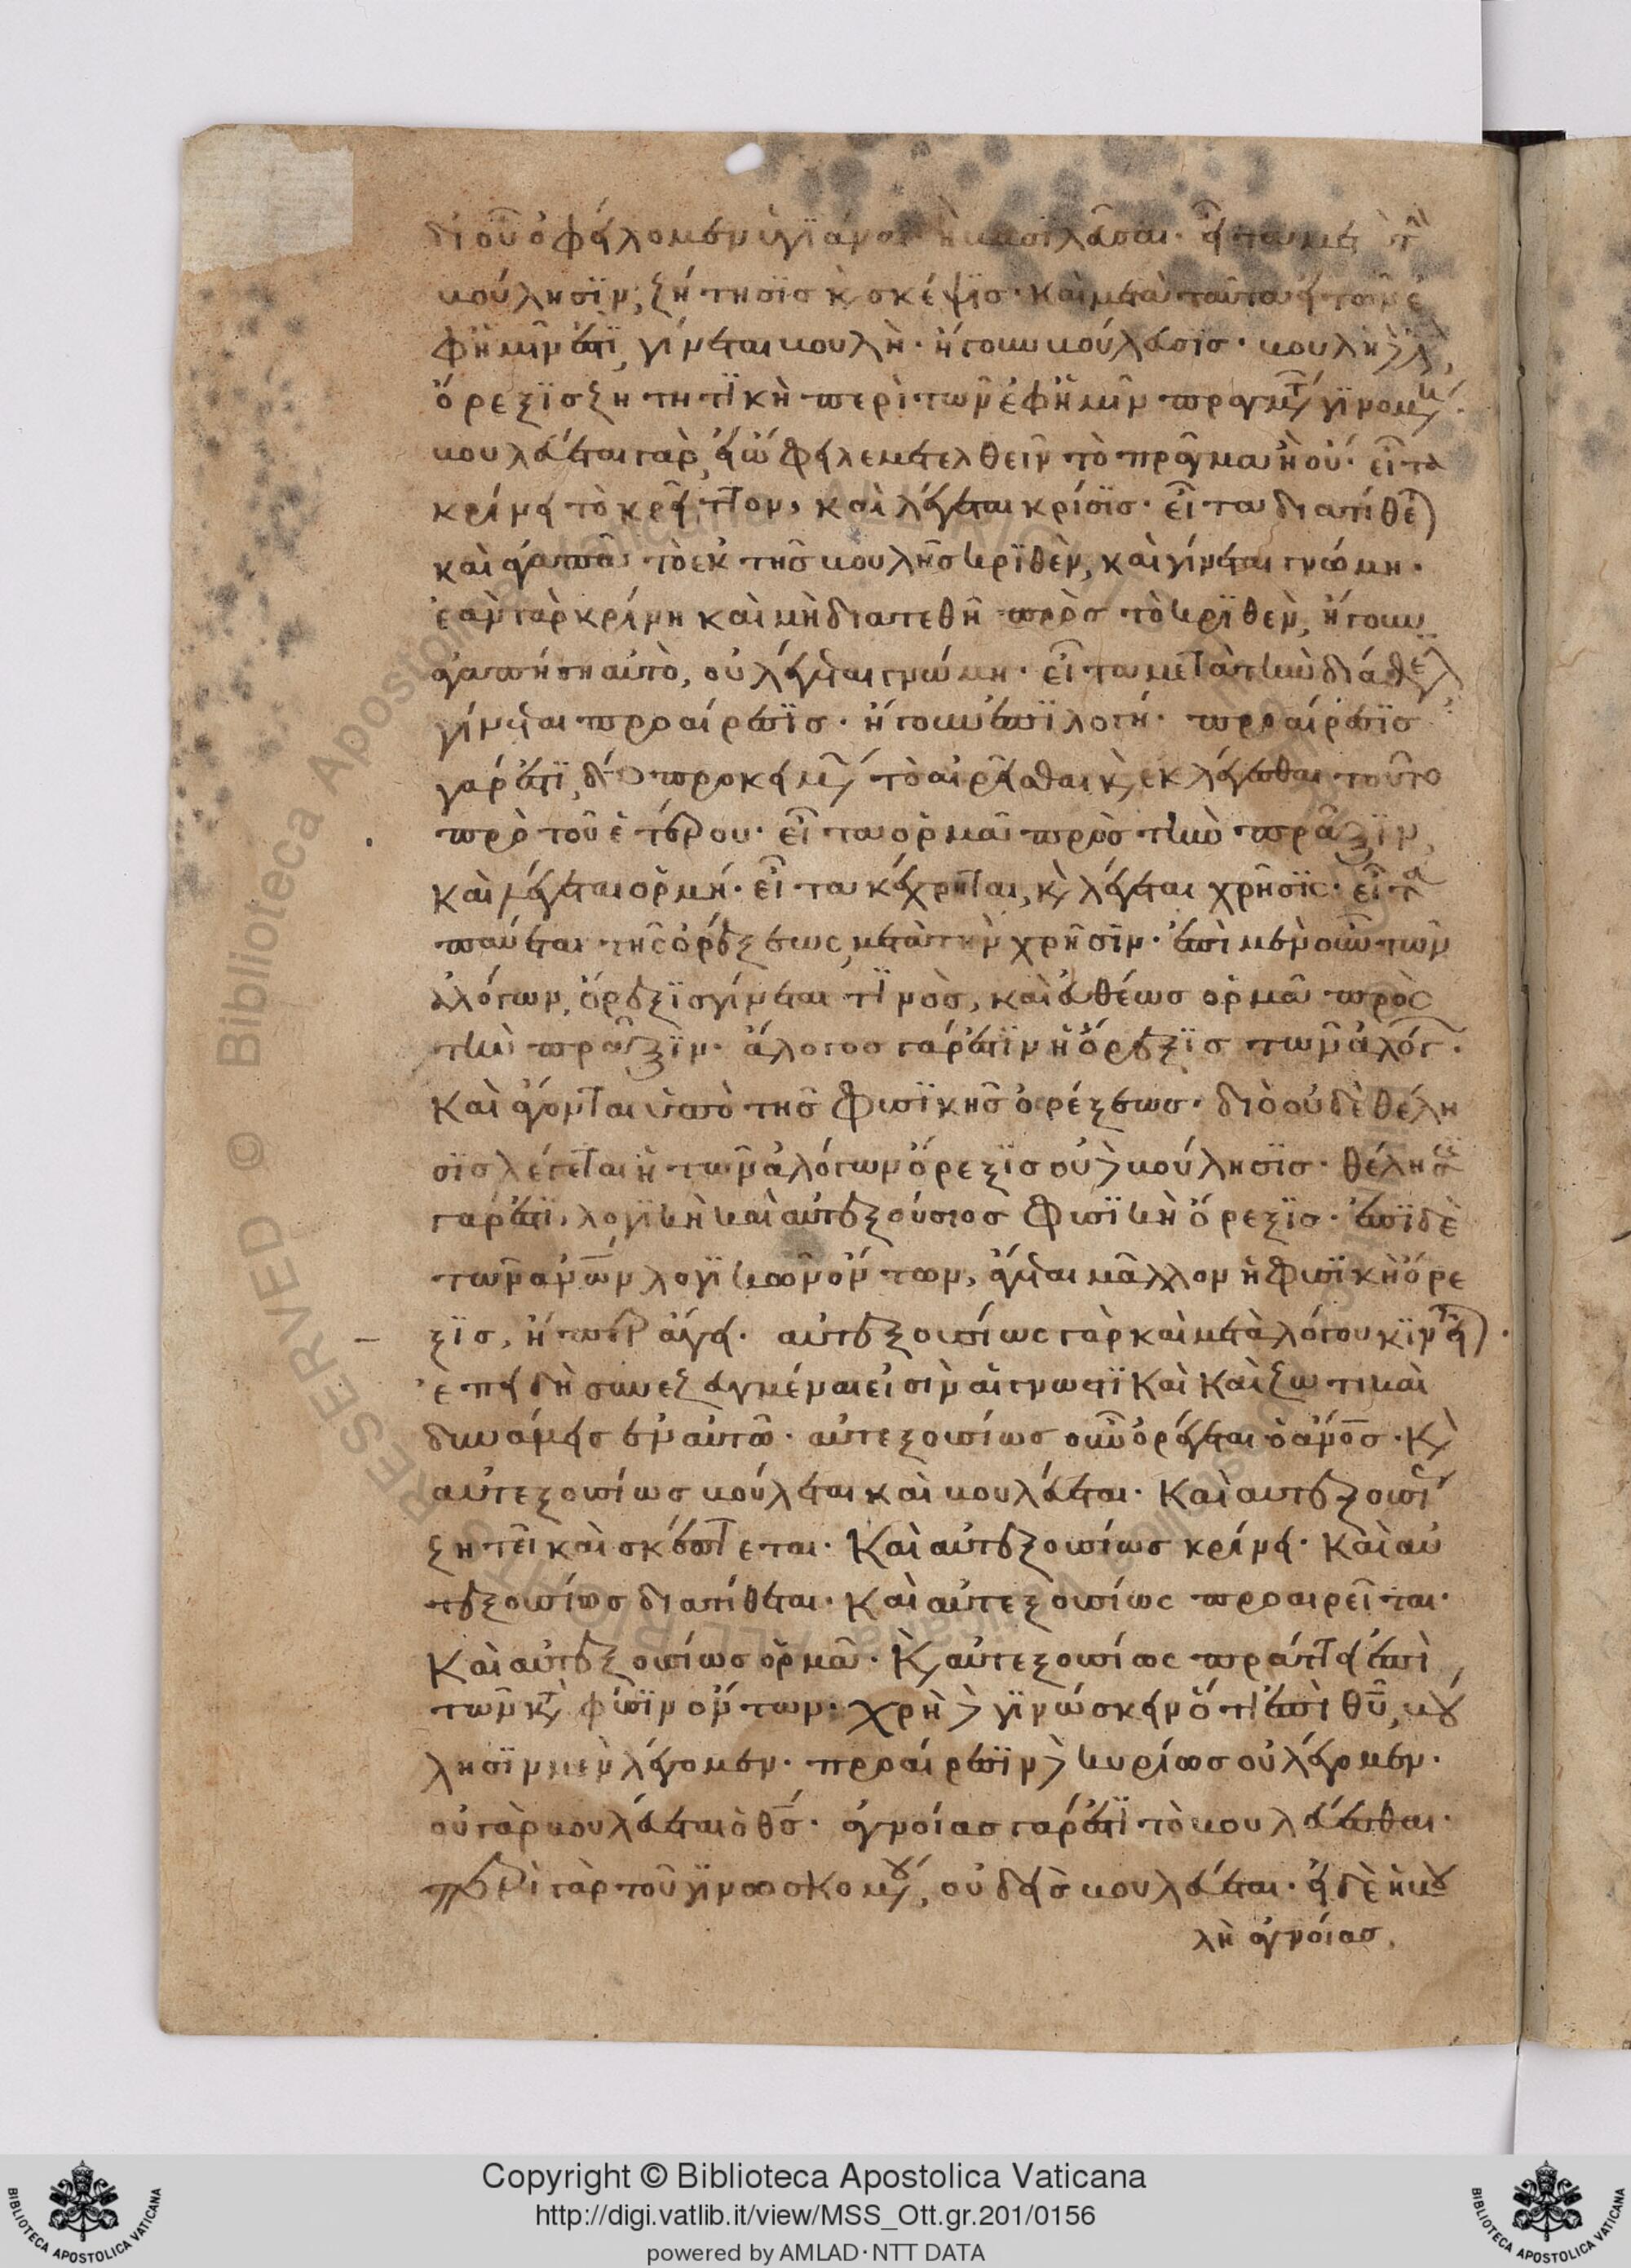 δι οὗ ὀφείλομεν ὑγιάναι ἢ βασιλεῦσαι· εἶτα μετὰ τὴν
βούλησϊν, ζήτησϊσ κ̀ σκέψϊσ· καὶ μετὰ ταῦτα εἰ τῶν ἐ
φ ἡμῖν ἐστϊ, γίνεται βουλὴ· ἤγουν βούλευσϊσ· βουλὴ δέ ἐστιν,
ὄρεξϊσ ζητητϊκὴ περὶ τῶν ἐφ ἡμῖν πραγμάτων γϊνομένη·
βουλεύεται γὰρ, εἰ ὤφειλε μετελθεῖν τὸ πρᾶγμα ἢ οὔ· εἶτα
κρίνει τὸ κρεῖττον, καὶ λέγεται κρίσϊσ· εἶτα διατίθεται
καὶ ἀγαπᾶ τὸ ἐκ τῆσ βουλῆσ κρϊθὲν, καὶ γίνεται γνώμη·
ἐὰν γὰρ κρίνη καὶ μὴ διατεθῆ πρὸσ τὸ κρϊθὲν, ἤγουν
ἀγαπήση αὐτὸ, οὐ λέγεται γνώμη· εἶτα μετὰ τὴν διάθεσϊν
γίνεται προαίρεσϊσ· ἤγουν ἐπϊλογή· προαίρεσϊσ
γάρ ἐστϊ, δύο προκειμένων τὸ αἱρεῖσθαι κ̀ ἐκλέγεσθαι τοῦτο
πρὸ τοῦ ἑτέρου· εἶτα ὁρμᾶ πρὸσ τὴν πρᾶξϊν,
καὶ λέγεται ὁρμή· εἶτα κέχρηται, κ̀ λέγεται χρῆσϊς· εἶτα
παύεται τῆς ὀρέξεως, μετὰ τὴν χρῆσϊν· ἐπὶ μὲν οὖν τῶν
ἀλόγων, ὄρεξϊσ γίνεται τϊνὸσ, καὶ εὐθέωσ ὁρμᾶ πρὸς
τὴν πρᾶξϊν· ἄλογοσ γάρ ἐστϊν ἡ ὄρεξϊσ τῶν ἀλόγων·
Καὶ ἄγονται ὑπὸ τῆσ φυσϊκῆσ ὀρέξεωσ· διὸ οὐδὲ θέλη
σϊσ λέγεται ἡ τῶν ἀλόγων ὄρεξϊσ οὐδὲ βούλησϊσ· θέλησϊσ
γάρ ἐστϊ, λογϊκὴ καὶ αὐτεξούσιοσ φυσϊκὴ ὄρεξϊσ· ἐπϊ δὲ
τῶν ἀν̅ων λογϊκῶν ὄντων, ἄγεται μᾶλλον ἡ φυσϊκὴ ὄρε
ξϊσ, ἤπερ ἄγει· αὐτεξουσίως γὰρ καὶ μετὰ λόγου κϊνεῖται·
ἐπειδὴ συνεζευγμέναι εἰσὶν αἱ γνωστϊκαὶ καὶ ζωτικαὶ
δυνάμεισ ἐν αὐτῶ· αὐτεξουσίωσ οὖν ὀρέγεται ὁ ἄν̅οσ· Κ̀
αὐτεξουσίωσ βούλεται καὶ βουλεύεται· Καὶ αὐτεξουσίως
ζητεῖ καὶ σκέπτεται· Καὶ αὐτεξουσίωσ κρίνει· Καὶ αὐ
τεξουσίωσ διατίθεται· Καὶ αὐτεξουσίως προαιρεῖται·
Καὶ αὐτεξουσίωσ ὁρμᾶ· Κ̀ αὐτεξουσίως πράττει ἐπὶ
τῶν κατὰ φύσϊν ὄντων· χρὴ δὲ γϊνώσκειν ὅτι ἐπὶ θ̅υ, βού
λησϊν μὲν λέγομεν· προαίρεσϊν δὲ κυρίωσ οὐ λέγομεν·
οὐ γὰρ βουλεύεται ὁ θ̅σ· ἀγνοίασ γάρ ἐστϊ τὸ βουλεύεσθαι·
περὶ γὰρ τοῦ γϊνωσκομένου, οὐδεὶσ βουλεύεται· εἰ δὲ ἡ βου
λὴ ἀγνοίασ,
Copyright © Biblioteca Apostolica Vaticana
http://digi.vatlib.it/view/MSS_Ott.gr.201/0156
powered by AMLAD·NTT DATA